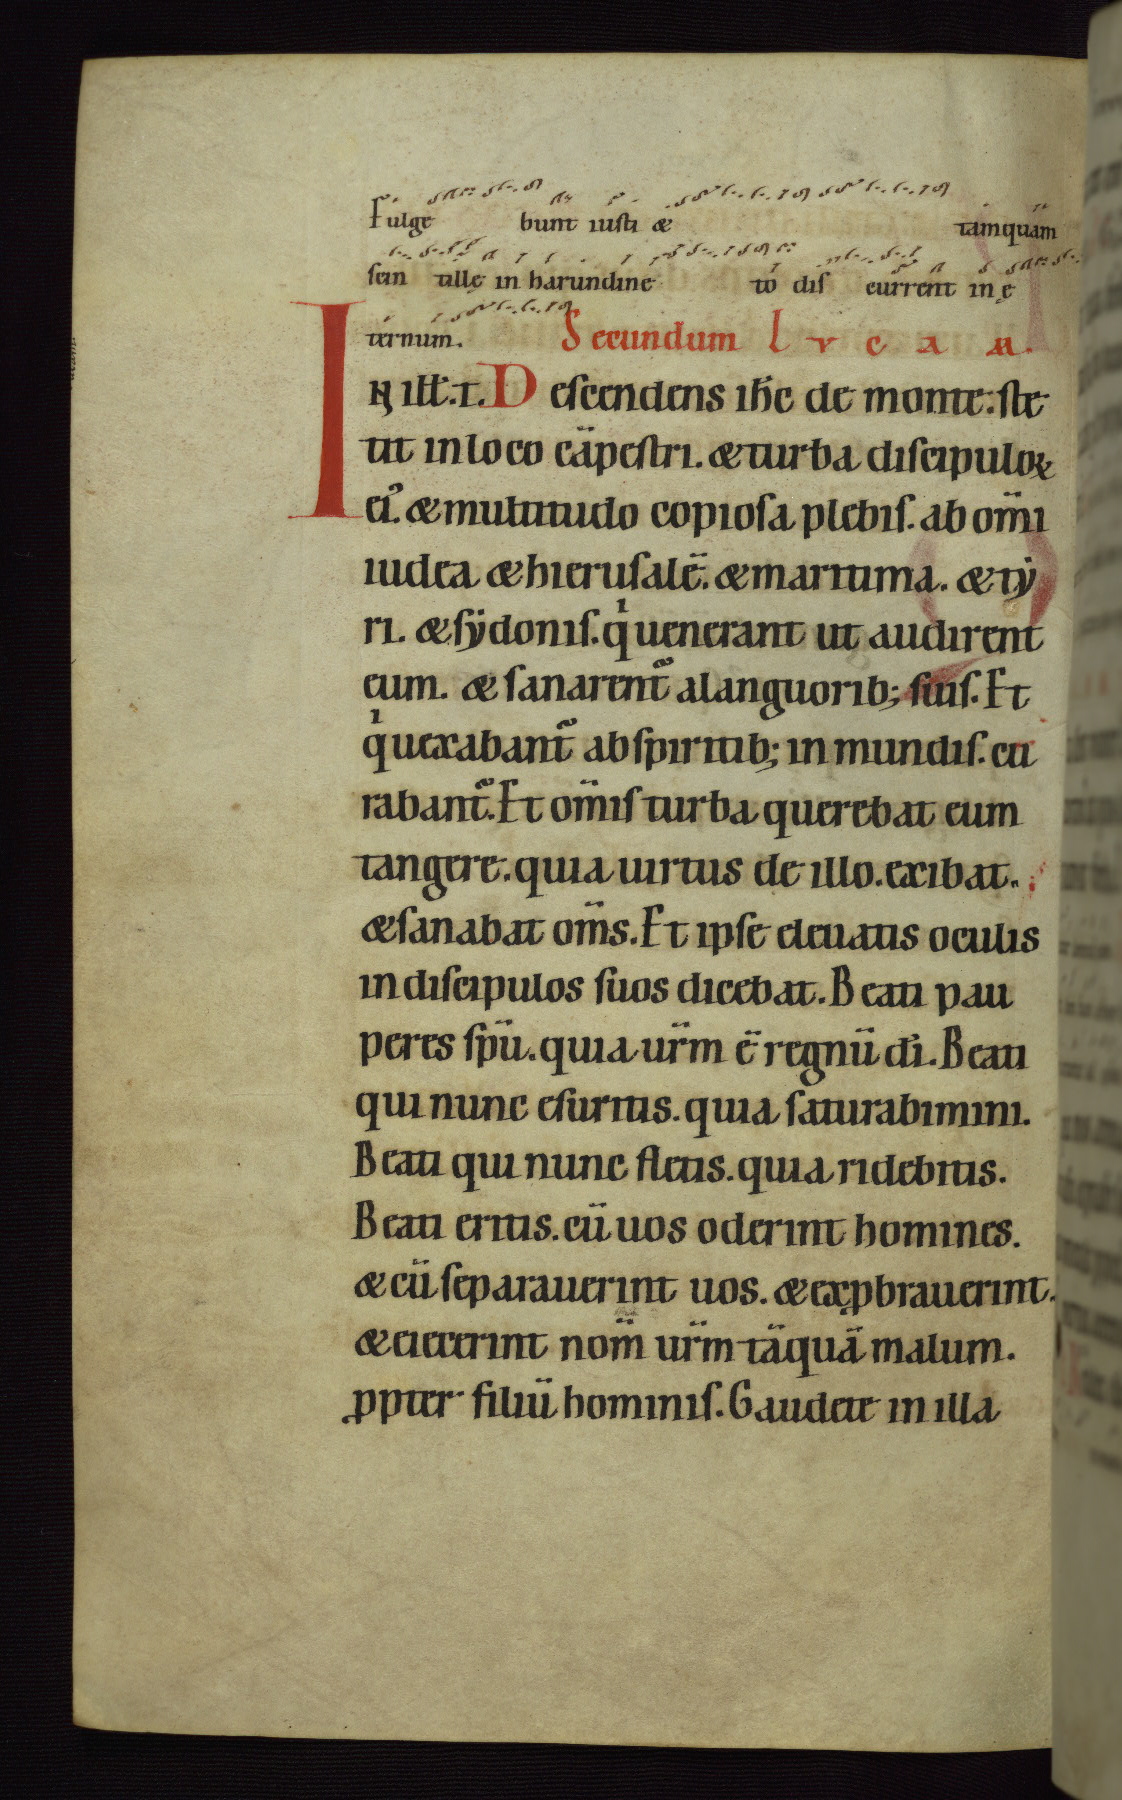 Fulge bunt iusti & tamquam
scin tillę in harundine to dis current in ę
ternum. Secundum LVCAM.
IN ill̄. t. Descendens ihc̄ de monte. ste
tit in loco cāpestri. & turba discipuloꝝ
eiꝰ. & multitudo copiosa plebis. ab om̄i
iudea & hierusalē. & maritima. & ty
ri. & sydonis. qͥ uenerant ut audirent
eum. & sanarent᷑ a languorib; suis. Et
qͥ uexabant᷑ ab spiritib; in mundis. cu
rabant᷑. Et om̄is turba querebat eum
tangere. quia uirtus de illo. exibat.
& sanabat om̄s. Et ipse eleuatis oculis
in discipulos suos dicebat. Beati pau
peres sp̄u. quia ur̄m ē regnū dī. Beati
qui nunc esuritis. quia saturabimini.
Beati qui nunc fletis. quia ridebitis.
Beati eritis. cū uos oderint homines.
& cū separauerint uos. & exꝓbrauerint.
& eiecerint nom̄ ur̄m tāquā malum.
ꝓpter filiū hominis. Gaudete in illa